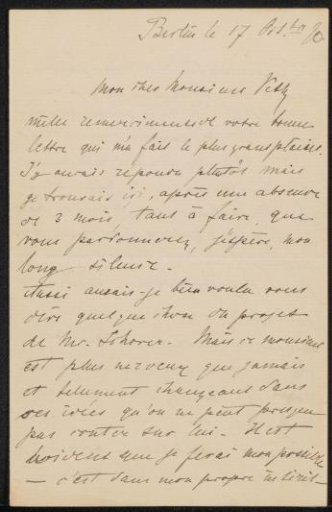 Berlin le 17 Oct. 90
Mon cher Monsieur Veth
mille remerciments de votre bonne
lettre qui m'a fait le plus grand plaisir.
J'y aurais repondu plutôt mais
je trouvais ici, après une absence
de 2 mois, tant à faire que
vous pardonnerez, j'espère, mon
long silence.
Aussi aurais-je bien voulu vous
dire quelque chose du projet
de Mr. Mais ce monsieur
est plus nerveux que jamais
et tellement changeant dans
ses idées qu'on ne peut presque
pas conter sur lui. Il est
que je ferai mon possible
— c'est dans mon propre intérêt —